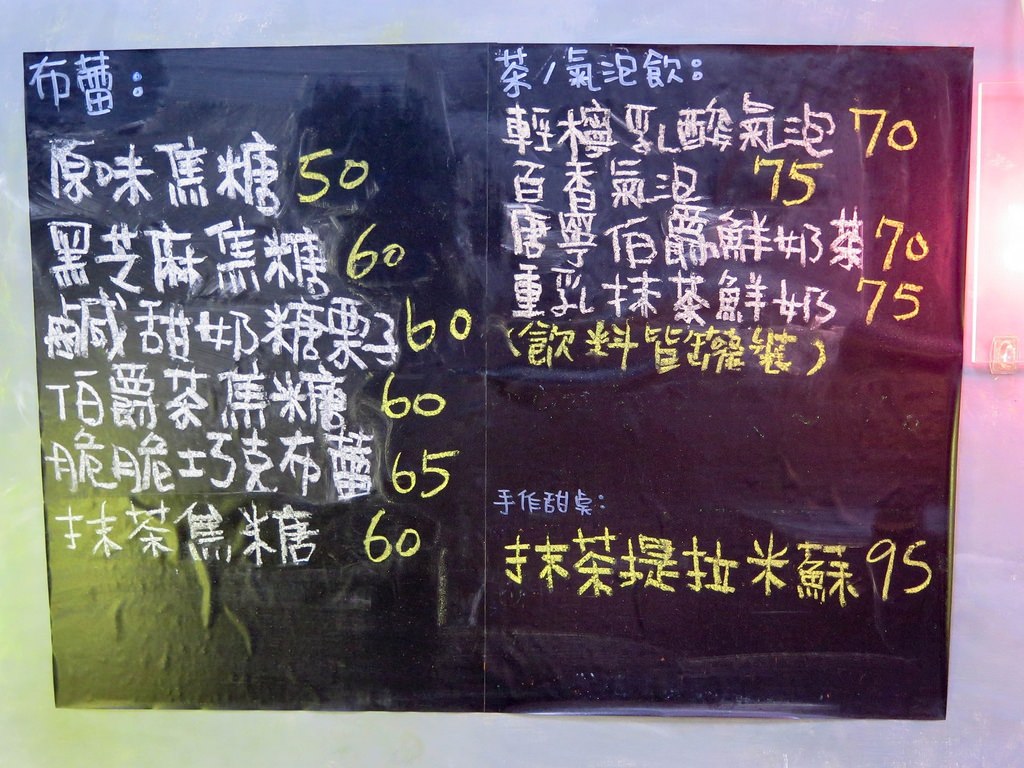 布蕾:
原味焦糖 50
黑芝麻焦糖 60
鹹甜奶糖栗子 60
伯爵茶焦糖 60
脆脆巧克布蕾 65
抹茶焦糖 60
茶/氣泡飲:
輕檸乳酸氣泡 70
百香氣泡 75
唐寧伯爵鮮奶茶 70
重乳抹茶鮮奶 75
(飲料皆罐裝)
手作甜桌:
抹茶提拉米蘇 95